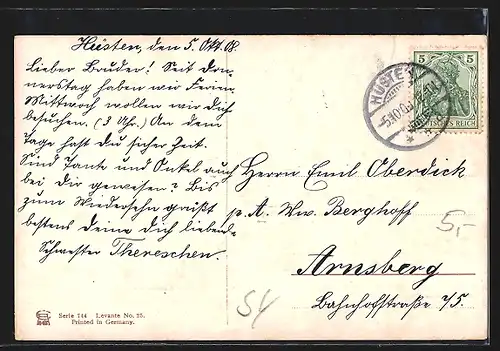 Hüsten, den 5. Okt. 08.
Lieber Bruder! Seit Don-
nerstag haben wir Ferien.
Mittwoch wollen wir dich
besuchen. (3 Uhr.) An dem
Tage hast du sicher Zeit.
Sind Tante und Onkel auch
bei dir gewesen? Bis
zum Wiedersehn grüßt
bestens deine dich liebende
Schwester Thereschen.
5 5
DEUTSCHES REICH
HÜSTEN
5.10.08
Herrn Emil Oberdick
p. A. Ww. Berghoff
Arnsberg
Bahnhofstraße 75.
5,-
54
Serie 144 Levante No. 25.
Printed in Germany.